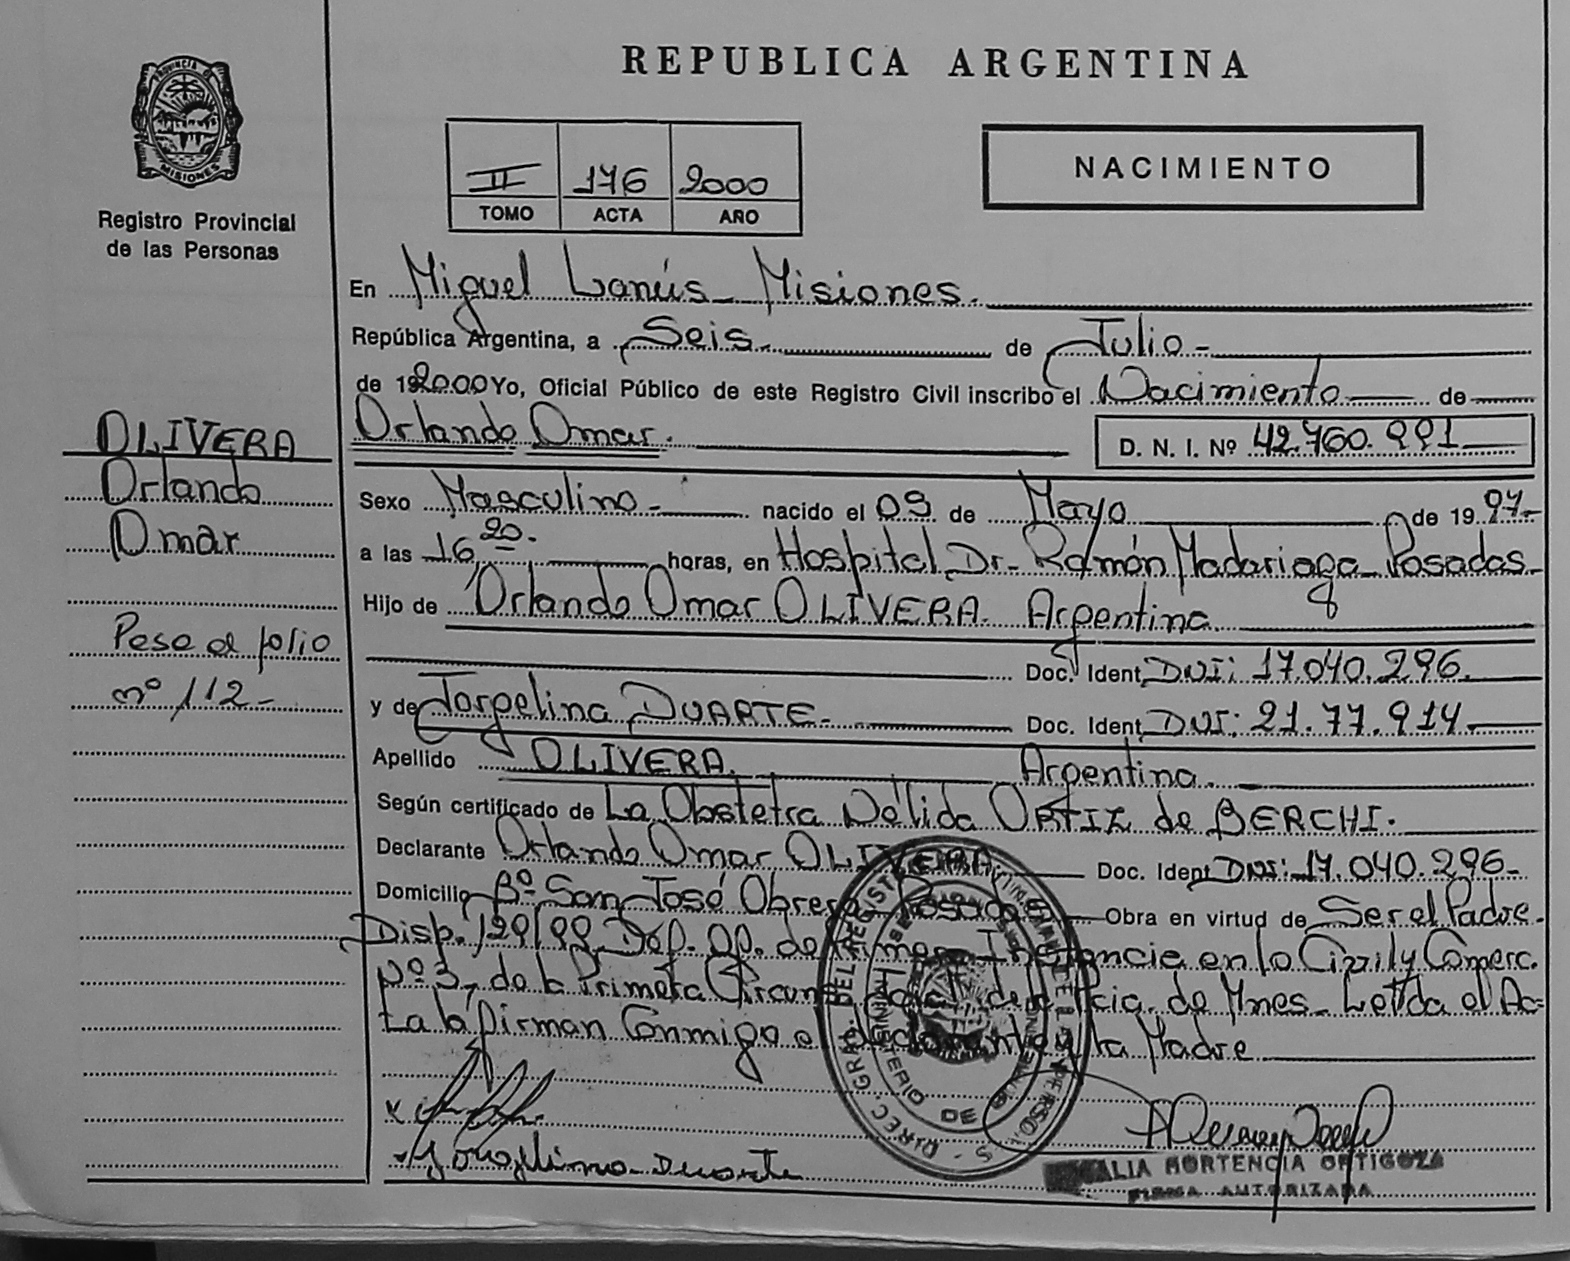 REPUBLICA ARGENTINA
PROVINCIA DE
MISIONES
Registro Provincial
de las Personas
II 176 2000
TOMO ACTA AÑO
NACIMIENTO
En Miguel Lanús - Misiones.
República Argentina, a Seis. de Julio-
de 192000 Yo, Oficial Público de este Registro Civil inscribo el Nacimiento de
Orlando Omar.
D. N. I. Nº 42.760.991
OLIVERA
Orlando
Omar
Pase al folio
nº 112-
Sexo Masculino- nacido el 09 de Mayo de 1997-
a las 16 20. horas, en Hospital Dr. Ramón Madariaga Posadas-
Hijo de Orlando Omar OLIVERA. Argentina
Doc. Ident. DNI: 17.040.296.
y de Jorgelina DUARTE. Doc. Ident. DNI: 21.77.914.
Apellido OLIVERA. Argentina.
Según certificado de La Obstetra Nélida ORTIZ de BERCHI.
Declarante Orlando Omar OLIVERA Doc. Ident. DNI: 17.040.296-
Domicilio Bº San José Obrero Posadas Obra en virtud de Ser el Padre.
Disp. 129/99 Def. Op. de Primera Instancia en lo Civil y Comerc.
Nº 3, de la Primera Circunscripción de la Pcia. de Mnes- Leída el Ac=
ta la firman Conmigo el declarante y la Madre
Jorgelina Duarte
DIREC. GRAL. DEL REGISTRO DE LAS PERSONAS
MINISTERIO DE
ALIA HORTENCIA ORTIGOZA
FIRMA AUTORIZADA